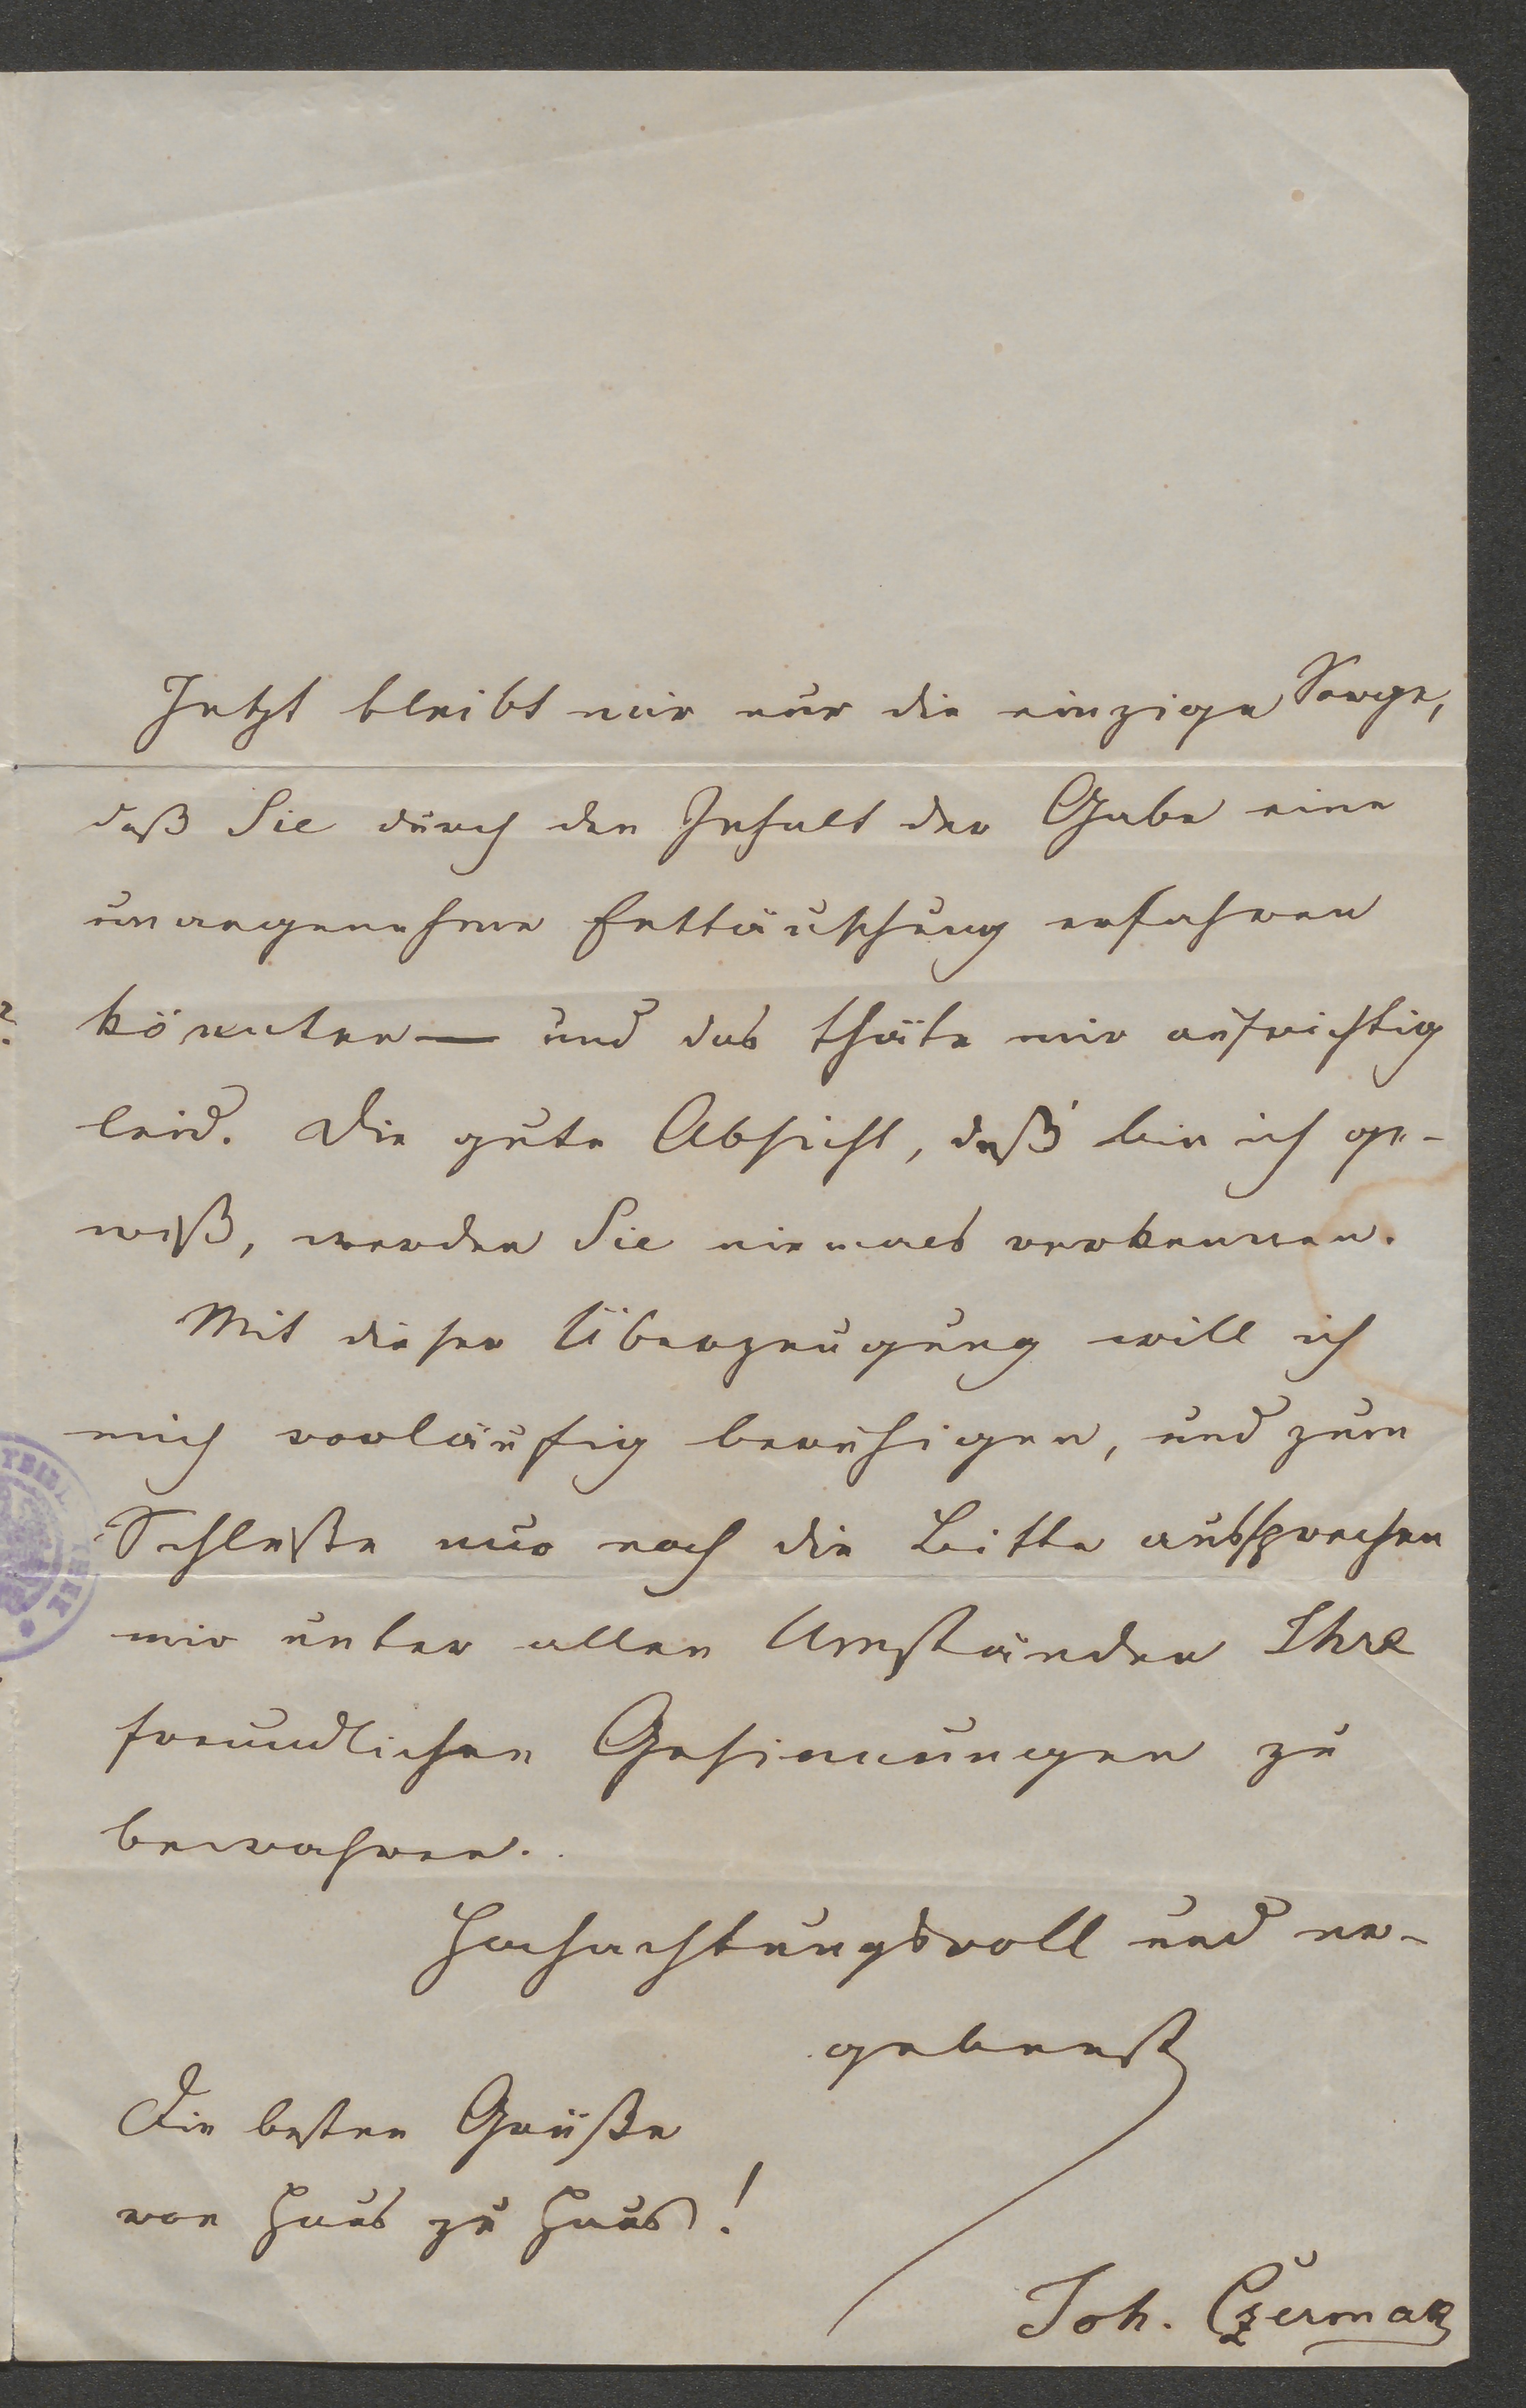 Jetzt bleibt mir nur die einzige Sorge,
daß Sie durch den Inhalt der Gabe eine
unangenehme Enttäuschung erfahren
könnten — und das thäte mir aufrichtig
leid. Die gute Absicht, daß bin ich ge-
wiß, werden Sie niemals verkennen.
Mit dieser Überzeugung will ich
mich vorläufig beruhigen, und zum
Schluße nur noch die Bitte aussprechen
mir unter allen Umständen Ihre
freundlichen Gesinnungen zu
bewahren.
Hochachtungsvoll und er-
gebenst
Die besten Grüße
von Haus zu Haus!
Joh. Czermak